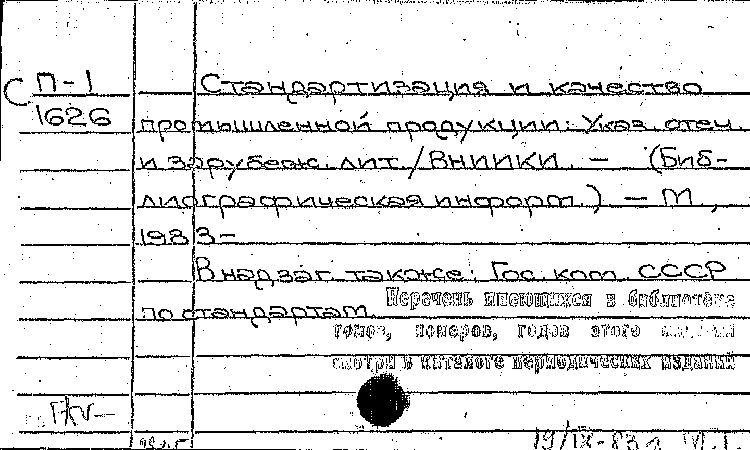 С П-1
1626
Стандартизация и качество
промышленной продукции: Указ. отеч.
и зарубеж. лит. / ВНИИКИ. – (Биб-
лиографическая информ.) – М.,
1983–
В надзаг. также: Гос. ком. СССР
по стандартам.
Перечень имеющихся в библиотеке
томов, номеров, годов этого издания
смотри в каталоге периодических изданий
19/IX-83г.